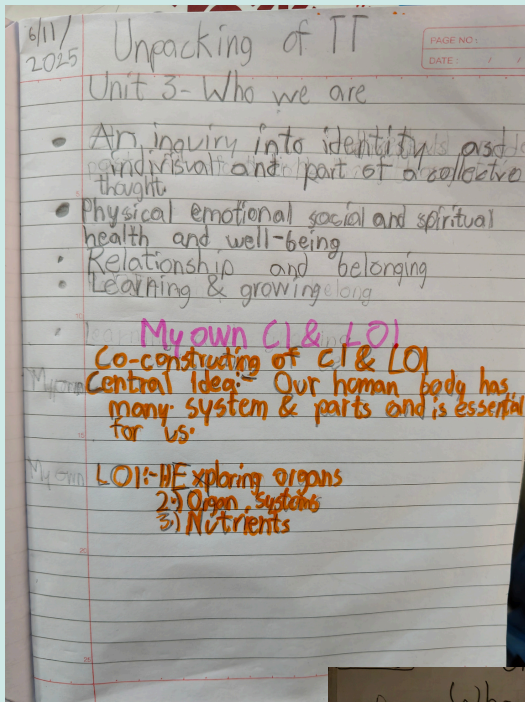 6/11/
2025
Unpacking of TT
PAGE NO:
DATE: / /
Unit 3-Who we are
• An inquiry into identity as
individual and part of a collective
thought
• Physical emotional social and spiritual
health and well-being
• Relationship and belonging
• Learning & growing
My own CI & LOI
Co-constructing of CI & LOI
My own Central Idea:- Our human body has
many system & parts and is essential
for us.
My own LOI:-1)Exploring organs
2) Organ systems
3) Nutrients